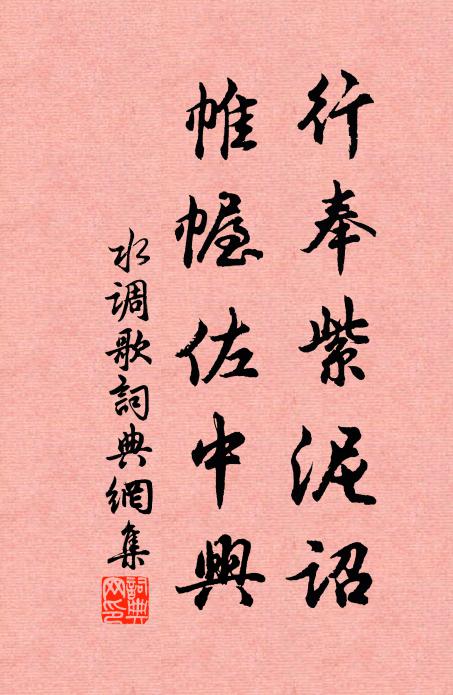 行奉紫泥詔
帷幄佐中興
水调歌詞典網集
詞典网印